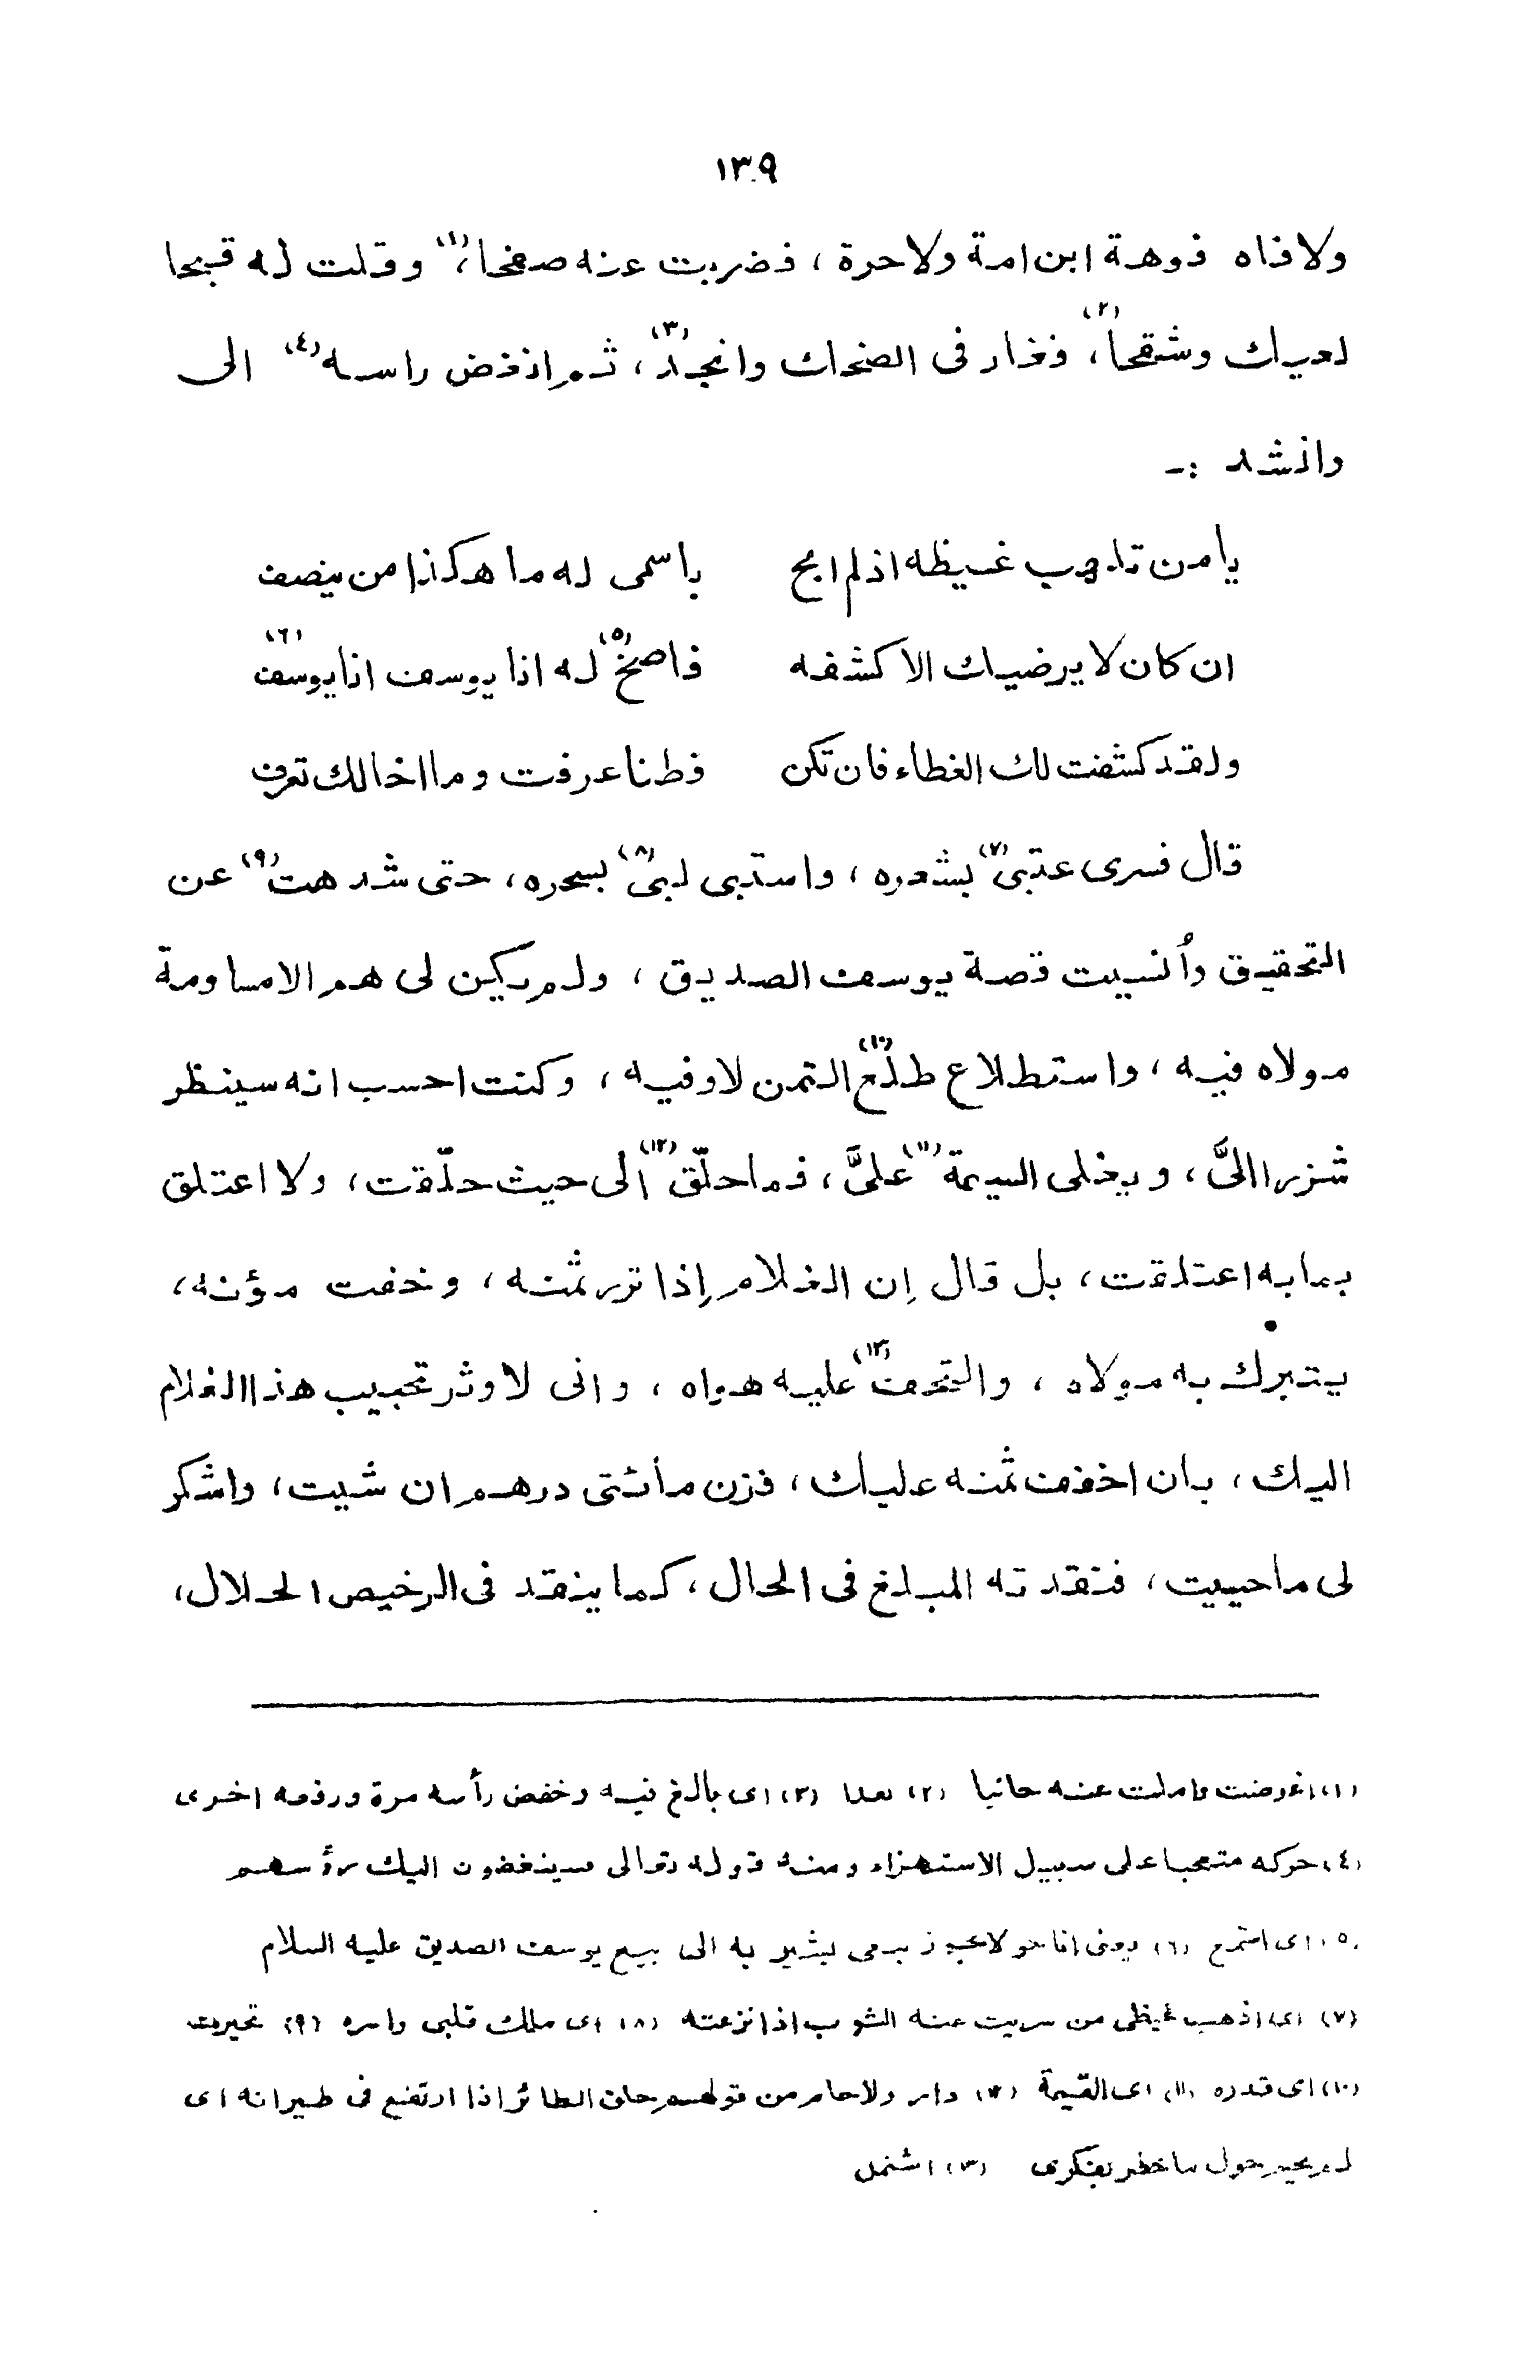 ١٣٩
ولا فاه فوهة ابن امة ولا حرة ، فضربت عنه صفحا ،(١) وقلت له قبحا
لعيك وشقحا (٢)، فغار فى الضحك وانجد (٣)، ثم انغض راسه (٤) الى
وانشد :-
يا من تلهب غيظه اذ لم ابح باسمى له ما هكذا من ينصف
ان كان لا يرضيك الا كشفه فاصخ (٥) له انا يوسف انا يوسف (٦)
ولقد كشفت لك الغطاء فان تكن فطنا عرفت وما اخالك تعرف
قال فسرى عتبى (٧) بشعره ، واستبى لبى (٨) بسحره ، حتى شدهت (٩) عن
التحقيق وأنسيت قصة يوسف الصديق ، ولم يكن لى هم الا مساومة
مولاه فيه ، واستطلاع طلع (١٠) الثمن لاوفيه ، وكنت احسب انه سينظر
شزرا الىَّ ، ويغلى السيمة (١١) علىَّ ، فما حلّق (١٢) الى حيث حلّقت ، ولا اعتلق
بما به اعتلقت ، بل قال إن الغلام إذا نزر ثمنه ، وخفت مؤنه ،
يتبرك به مولاه ، والتحف (١٣) عليه هواه ، وانى لاوثر تحبيب هذا الغلام
اليك ، بان اخفف ثمنه عليك ، فزن مأئتى درهم ان شيت ، واشكر
لى ما حييت ، فنقدته المبلغ فى الحال ، كما ينقد فى الرخيص الحلال ،
(١) اعرضت واملت عنه جانبا (٢) بعدا (٣) اى بالغ فيه وخفض رأسه مرة ورفعه اخرى
(٤) حركه متعجبا على سبيل الاستهزاء ومنه قوله تعالى فسينغضون اليك رؤسهم
(٥) اى استمع (٦) يعنى انا حر لا يجوز بيعى ليشير به الى بيع يوسف الصديق عليه السلام
(٧) اى اذهب غيظى من سريت عنه الثوب اذا نزعته (٨) اى ملك قلبى واسره (٩) تحيرت
(١٠) اى قدره (١١) اى القيمة (١٢) دار ولا حام من قولهم حلق الطائر اذا ارتفع فى طيرانه اى
لم يحم حول ما خطر بفكرى (١٣) اشتمل